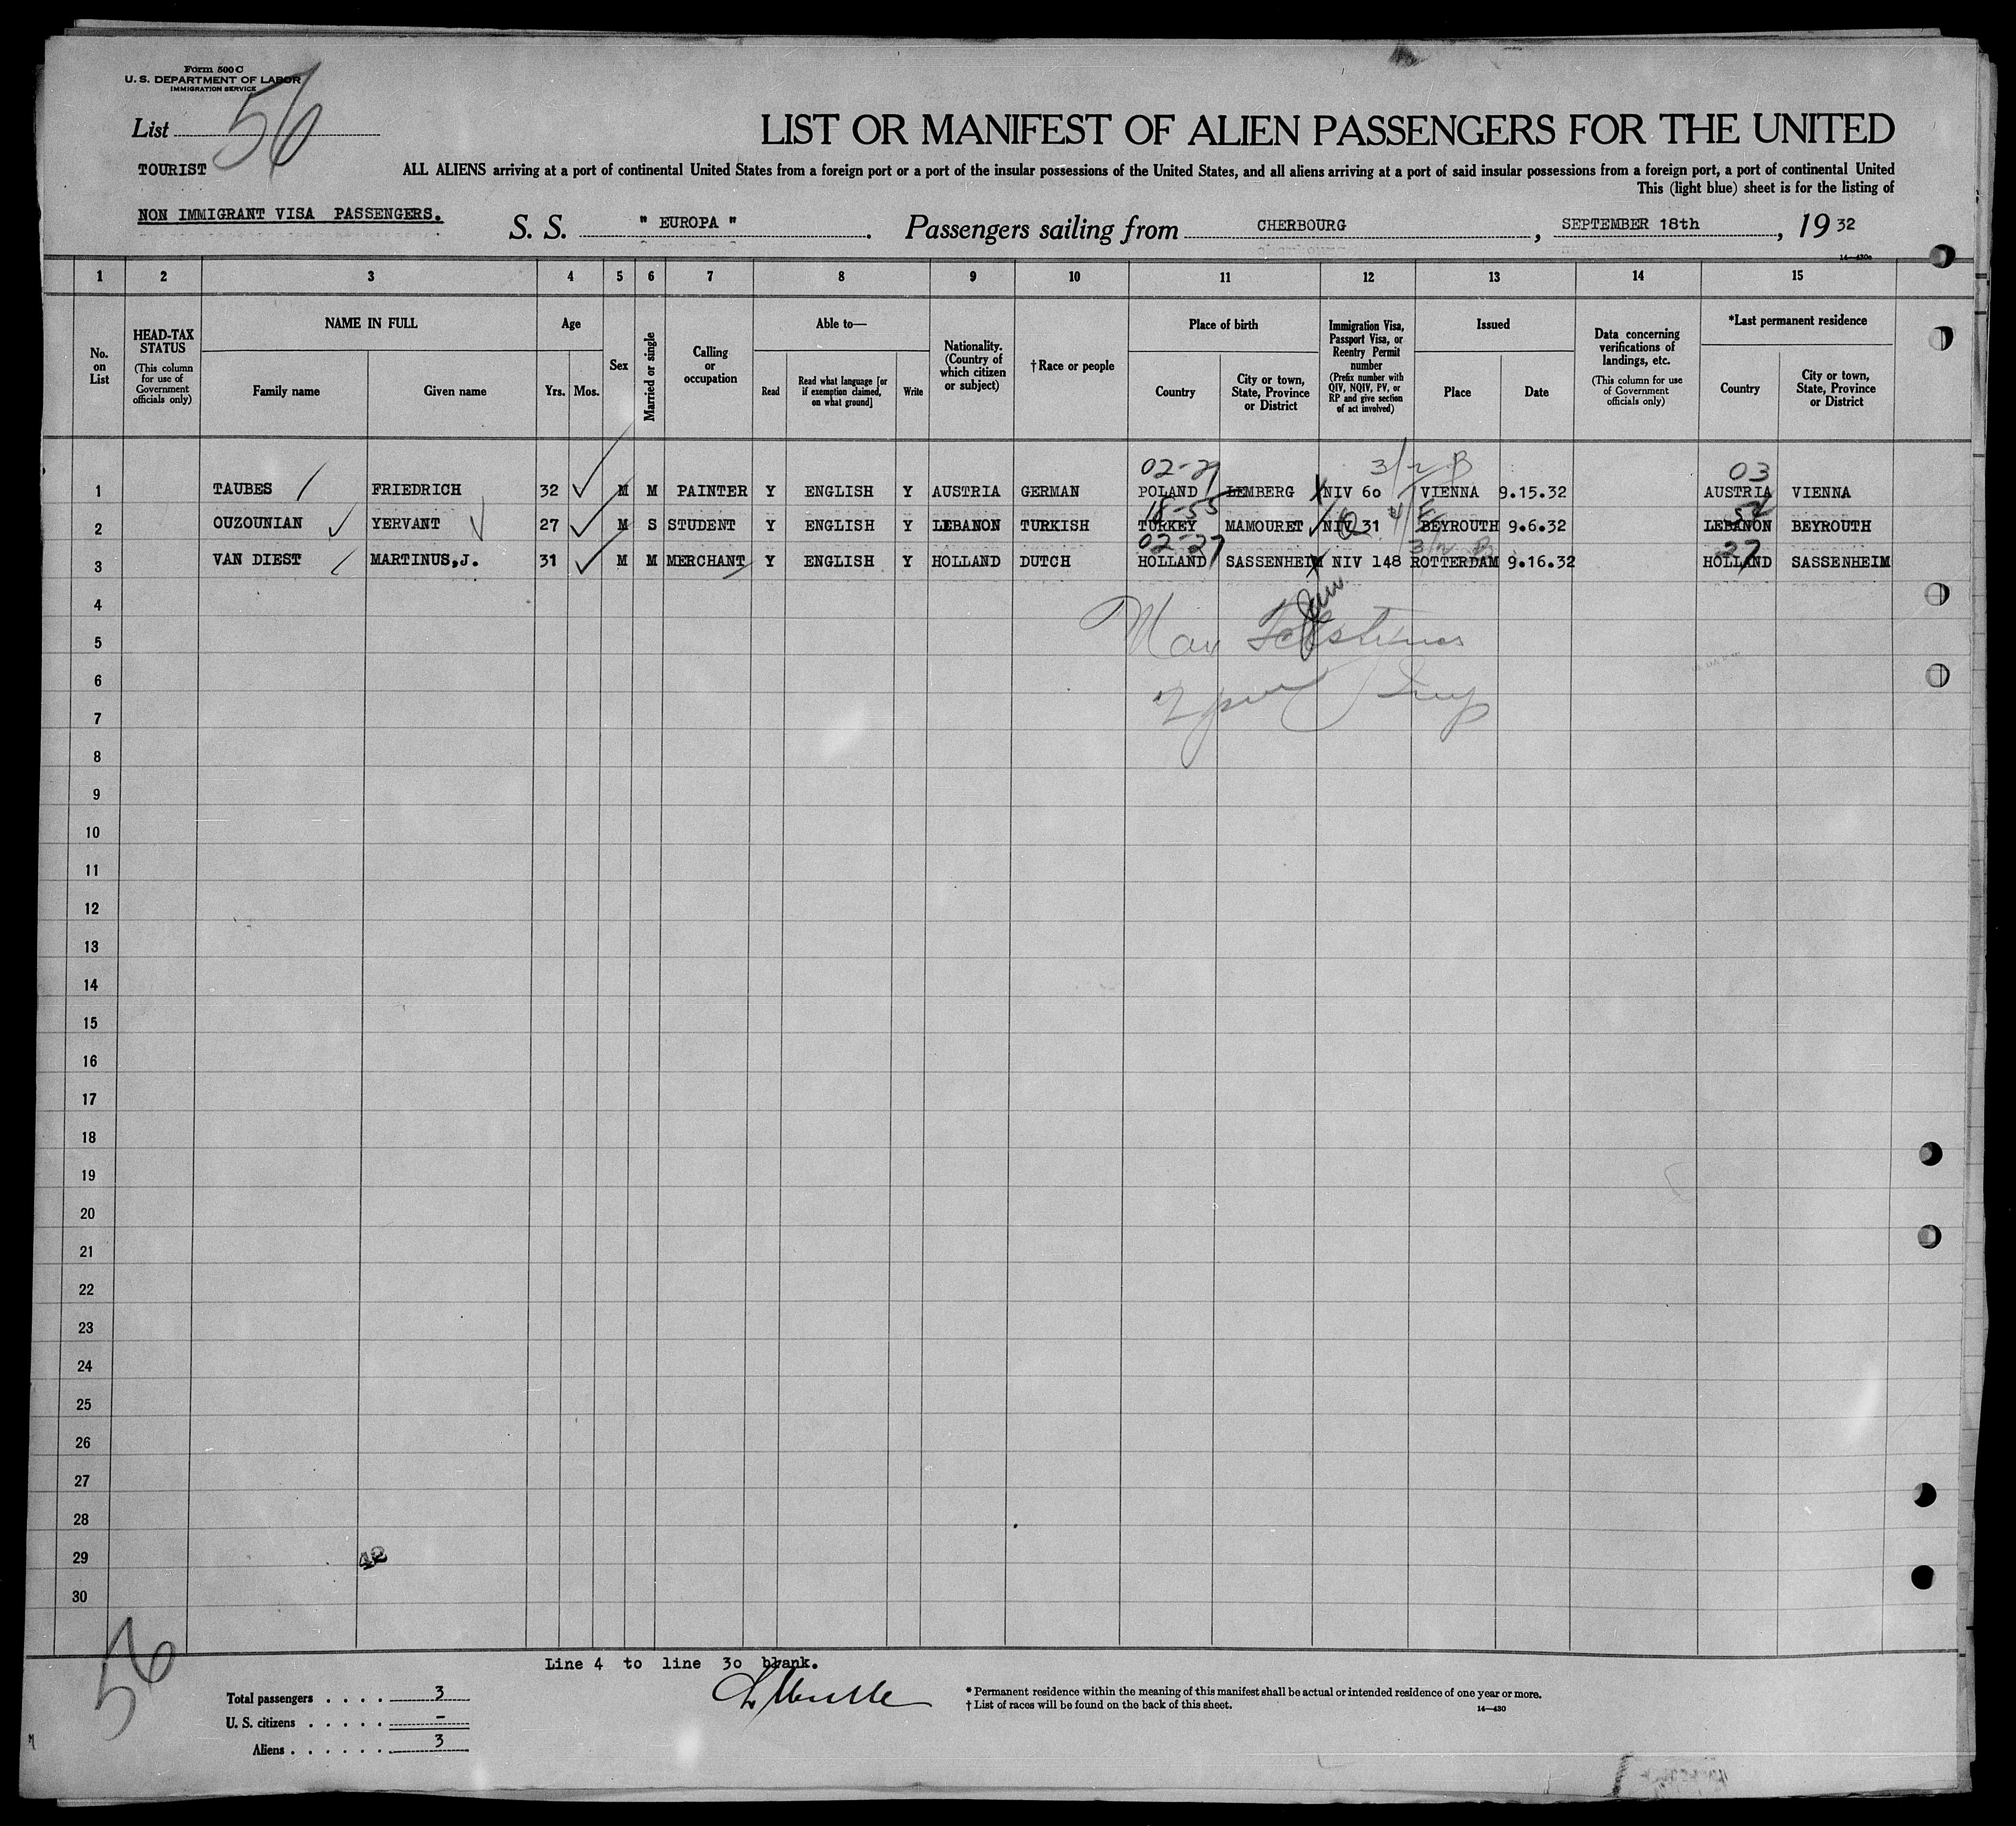 Form 500 C
U. S. DEPARTMENT OF LABOR
IMMIGRATION SERVICE
List 56
LIST OR MANIFEST OF ALIEN PASSENGERS FOR THE UNITED
TOURIST
ALL ALIENS arriving at a port of continental United States from a foreign port or a port of the insular possessions of the United States, and all aliens arriving at a port of said insular possessions from a foreign port, a port of continental United
This (light blue) sheet is for the listing of
NON IMMIGRANT VISA PASSENGERS.
S. S. " EUROPA ". Passengers sailing from CHERBOURG, SEPTEMBER 18th, 1932
14—430a
1 2 3 4 5 6 7 8 9 10 11 12 13 14 15
No. on List
HEAD-TAX STATUS
(This column for use of Government officials only)
NAME IN FULL
Family name
Given name
Age
Yrs.
Mos.
Sex
Married or single
Calling or occupation
Able to—
Read
Read what language [or if exemption claimed, on what ground]
Write
Nationality. (Country of which citizen or subject)
† Race or people
Place of birth
Country
City or town, State, Province or District
Immigration Visa, Passport Visa, or Reentry Permit number
(Prefix number with QIV, NQIV, PV, or RP and give section of act involved)
Issued
Place
Date
Data concerning verifications of landings, etc.
(This column for use of Government officials only)
*Last permanent residence
Country
City or town, State, Province or District
02-27 3/2 B 03
1 TAUBES FRIEDRICH 32 M M PAINTER Y ENGLISH Y AUSTRIA GERMAN POLAND LEMBERG NIV 60 VIENNA 9.15.32 AUSTRIA VIENNA
18-55 52
2 OUZOUNIAN YERVANT 27 M S STUDENT Y ENGLISH Y LEBANON TURKISH TURKEY MAMOURET NIV 31 BEYROUTH 9.6.32 LEBANON BEYROUTH
02-27 3/2 B 27
3 VAN DIEST MARTINUS,J. 31 M M MERCHANT Y ENGLISH Y HOLLAND DUTCH HOLLAND SASSENHEIM NIV 148 ROTTERDAM 9.16.32 HOLLAND SASSENHEIM
4
5
6
7
8
9
10
11
12
13
14
15
16
17
18
19
20
21
22
23
24
25
26
27
28
29 42
30
56
Line 4 to line 30 blank.
Total passengers . . . . 3
U. S. citizens . . . . . –
Aliens . . . . . . 3
* Permanent residence within the meaning of this manifest shall be actual or intended residence of one year or more.
† List of races will be found on the back of this sheet.
14—430